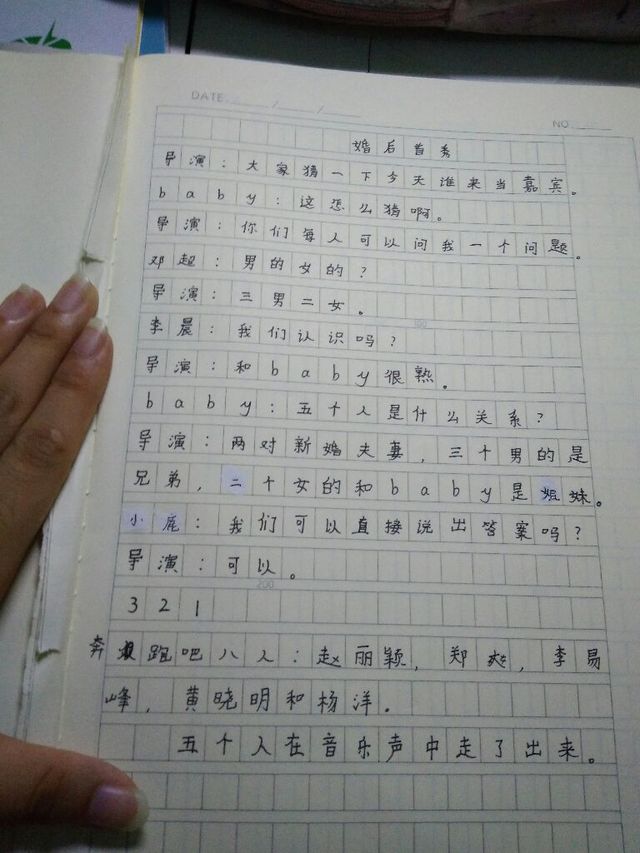 DATE / /
NO.
婚后首秀
导演：大家猜一下今天谁来当嘉宾。
baby：这怎么猜啊。
导演：你们每人可以问我一个问题。
邓超：男的女的？
导演：三男二女。
100
李晨：我们认识吗？
导演：和baby很熟。
baby：五个人是什么关系？
导演：两对新婚夫妻，三个男的是
兄弟，二个女的和baby是姐妹。
小鹿：我们可以直接说出答案吗？
导演：可以。
200
321
奔跑吧八人：赵丽颖，郑爽，李易
峰，黄晓明和杨洋。
五个人在音乐声中走了出来。